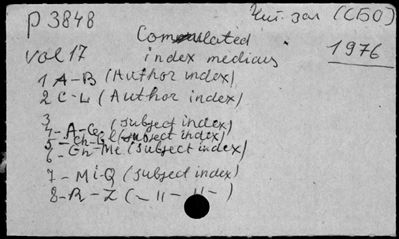 P 3848
Чит. зал (СБО)
Comulated
vol 17 index medicus 1976
1 A-B (Author index)
2 C-L (Author index)
3
4 - A-Ce (subject index)
5 - Ch-G (subject index)
6 - Gh-Me (subject index)
7 - Mi-Q (subject index)
8 - R-Z ( - 11 - 11 - )